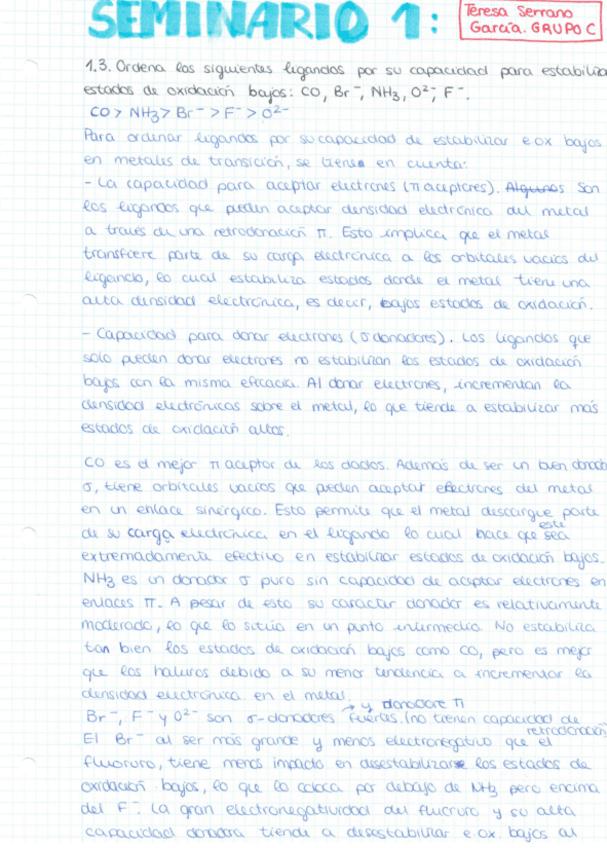 SEMINARIO 1:
Teresa Serrano
García. GRUPO C
1.3. Ordena los siguientes ligandos por su capacidad para estabiliza
estados de oxidación bajos: CO, Br⁻, NH₃, O²⁻, F⁻.
CO > NH₃ > Br⁻ > F⁻ > O²⁻
Para ordenar ligandos por su capacidad de estabilizar e.ox bajos
en metales de transición, se tiene en cuenta:
- La capacidad para aceptar electrones (π aceptores). Son
los ligandos que pueden aceptar densidad electrónica del metal
a través de una retrodonación π. Esto implica que el metal
transfiere parte de su carga electrónica a los orbitales vacíos del
ligando, lo cual estabiliza estados donde el metal tiene una
alta densidad electrónica, es decir, bajos estados de oxidación.
- Capacidad para donar electrones (σ donadores). Los ligandos que
solo pueden donar electrones no estabilizan los estados de oxidación
bajos con la misma eficacia. Al donar electrones, incrementan la
densidad electrónicas sobre el metal, lo que tiende a estabilizar más
estados de oxidación altos.
CO es el mejor π aceptor de los dados. Además de ser un buen donado
σ, tiene orbitales vacíos que pueden aceptar electrones del metal
en un enlace sinérgico. Esto permite que el metal descargue parte
de su carga electrónica en el ligando lo cual hace que este sea
extremadamente efectivo en estabilizar estados de oxidación bajos.
NH₃ es un donador σ puro sin capacidad de aceptar electrones en
enlaces π. A pesar de esto su carácter donador es relativamente
moderado, lo que lo sitúa en un punto intermedio. No estabiliza
tan bien los estados de oxidación bajos como CO, pero es mejor
que los haluros debido a su menor tendencia a incrementar la
densidad electrónica en el metal.
Br⁻, F⁻ y O²⁻ son σ-donadores fuertes → y donadore π (no tienen capacidad de
retrodonación
El Br⁻ al ser más grande y menos electronegativo que el
fluoruro, tiene menos impacto en desestabilizar los estados de
oxidación bajos, lo que lo coloca por debajo de NH₃ pero encima
del F⁻. La gran electronegatividad del fluoruro y su alta
capacidad donadora tiende a desestabilizar e.ox. bajos al